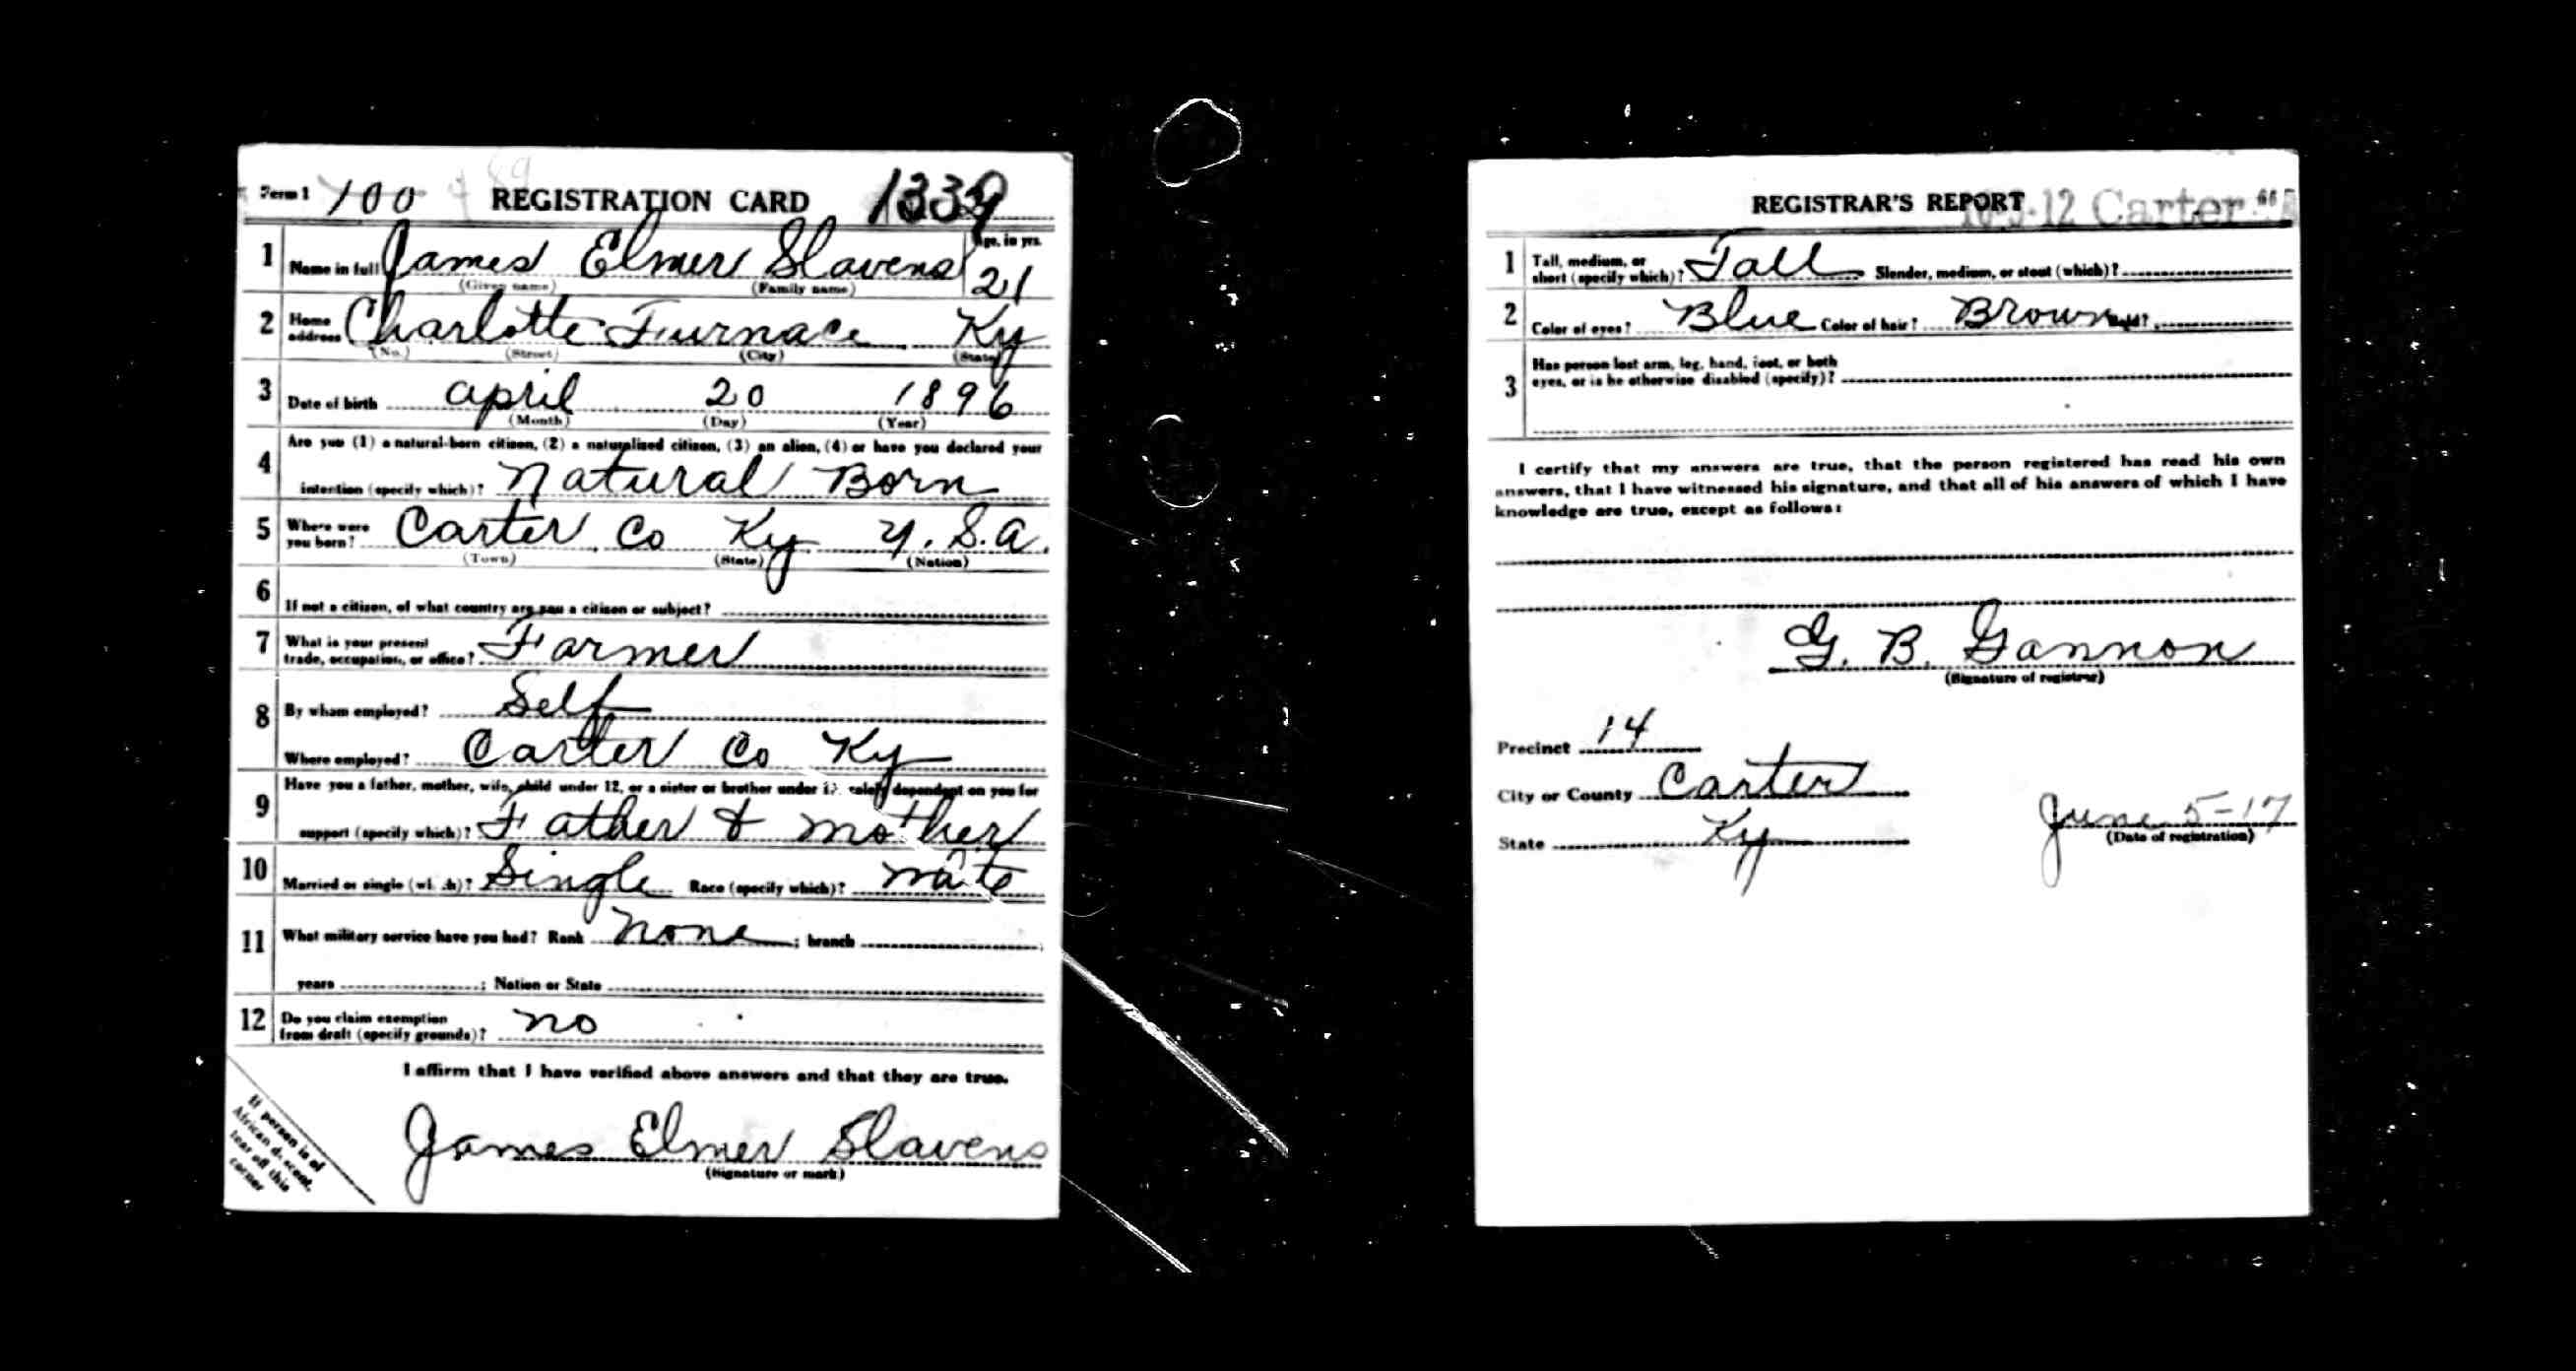 Form 1 100 REGISTRATION CARD 1339
1 Name in full James Elmer Slavens Age, in yrs. 21
(Given name) (Family name)
2 Home address Charlotte Furnace Ky
(No.) (Street) (City) (State)
3 Date of birth April 20 1896
(Month) (Day) (Year)
4 Are you (1) a natural-born citizen, (2) a naturalized citizen, (3) an alien, (4) or have you declared your
intention (specify which)? Natural Born
5 Where were you born? Carter Co Ky U.S.A.
(Town) (State) (Nation)
6 If not a citizen, of what country are you a citizen or subject?
7 What is your present
trade, occupation, or office? Farmer
8 By whom employed? Self
Where employed? Carter Co Ky
9 Have you a father, mother, wife, child under 12, or a sister or brother under 12, solely dependent on you for
support (specify which)? Father & Mother
10 Married or single (which)? Single Race (specify which)? White
11 What military service have you had? Rank None ; branch
years ; Nation or State
12 Do you claim exemption
from draft (specify grounds)? No
I affirm that I have verified above answers and that they are true.
James Elmer Slavens
(Signature or mark)
If person is of
African descent,
tear off this
corner
REGISTRAR'S REPORT
12 Carter
1 Tall, medium, or
short (specify which)? Tall Slender, medium, or stout (which)?
2 Color of eyes? Blue Color of hair? Brown Bald?
3 Has person lost arm, leg, hand, foot, or both
eyes, or is he otherwise disabled (specify)?
I certify that my answers are true, that the person registered has read his own
answers, that I have witnessed his signature, and that all of his answers of which I have
knowledge are true, except as follows:
G. B. Gannon
(Signature of registrar)
Precinct 14
City or County Carter
State Ky
June 5-17
(Date of registration)